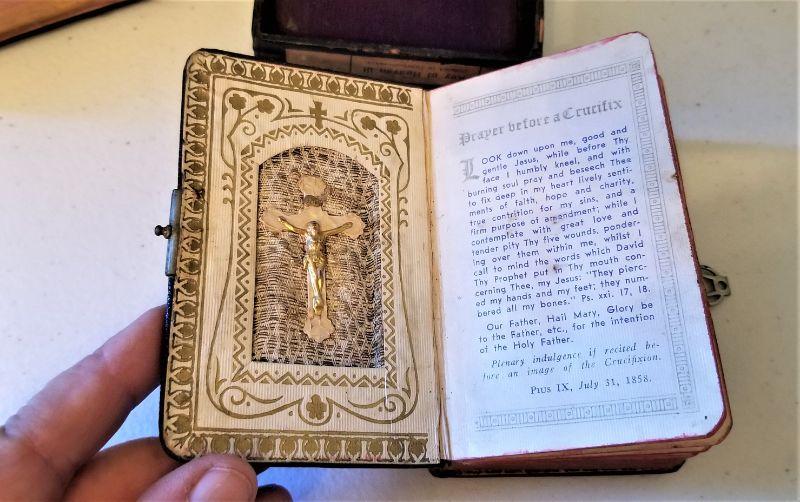 Prayer before a Crucifix
LOOK down upon me, good and
gentle Jesus, while before Thy
face I humbly kneel, and with
burning soul pray and beseech Thee
to fix deep in my heart lively senti-
ments of faith, hope and charity,
true contrition for my sins, and a
firm purpose of amendment; while I
contemplate with great love and
tender pity Thy five wounds, ponder-
ing over them within me, whilst I
call to mind the words which David
Thy Prophet put in Thy mouth con-
cerning Thee, my Jesus: "They pierc-
ed my hands and my feet; they num-
bered all my bones." Ps. xxi. 17, 18.
Our Father, Hail Mary, Glory be
to the Father, etc., for the intention
of the Holy Father.
Plenary indulgence if recited be-
fore an image of the Crucifixion.
PIUS IX, July 31, 1858.